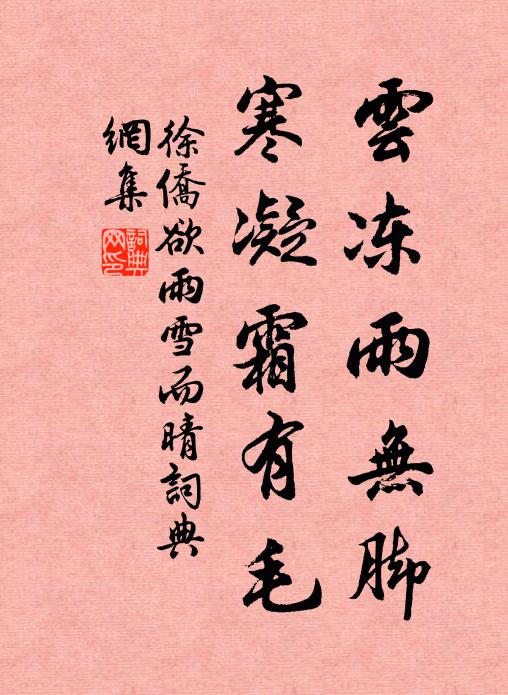 雲冻雨無脚
寒凝霜有毛
徐僑欲雨雪而晴詞典
網集
詞典網印